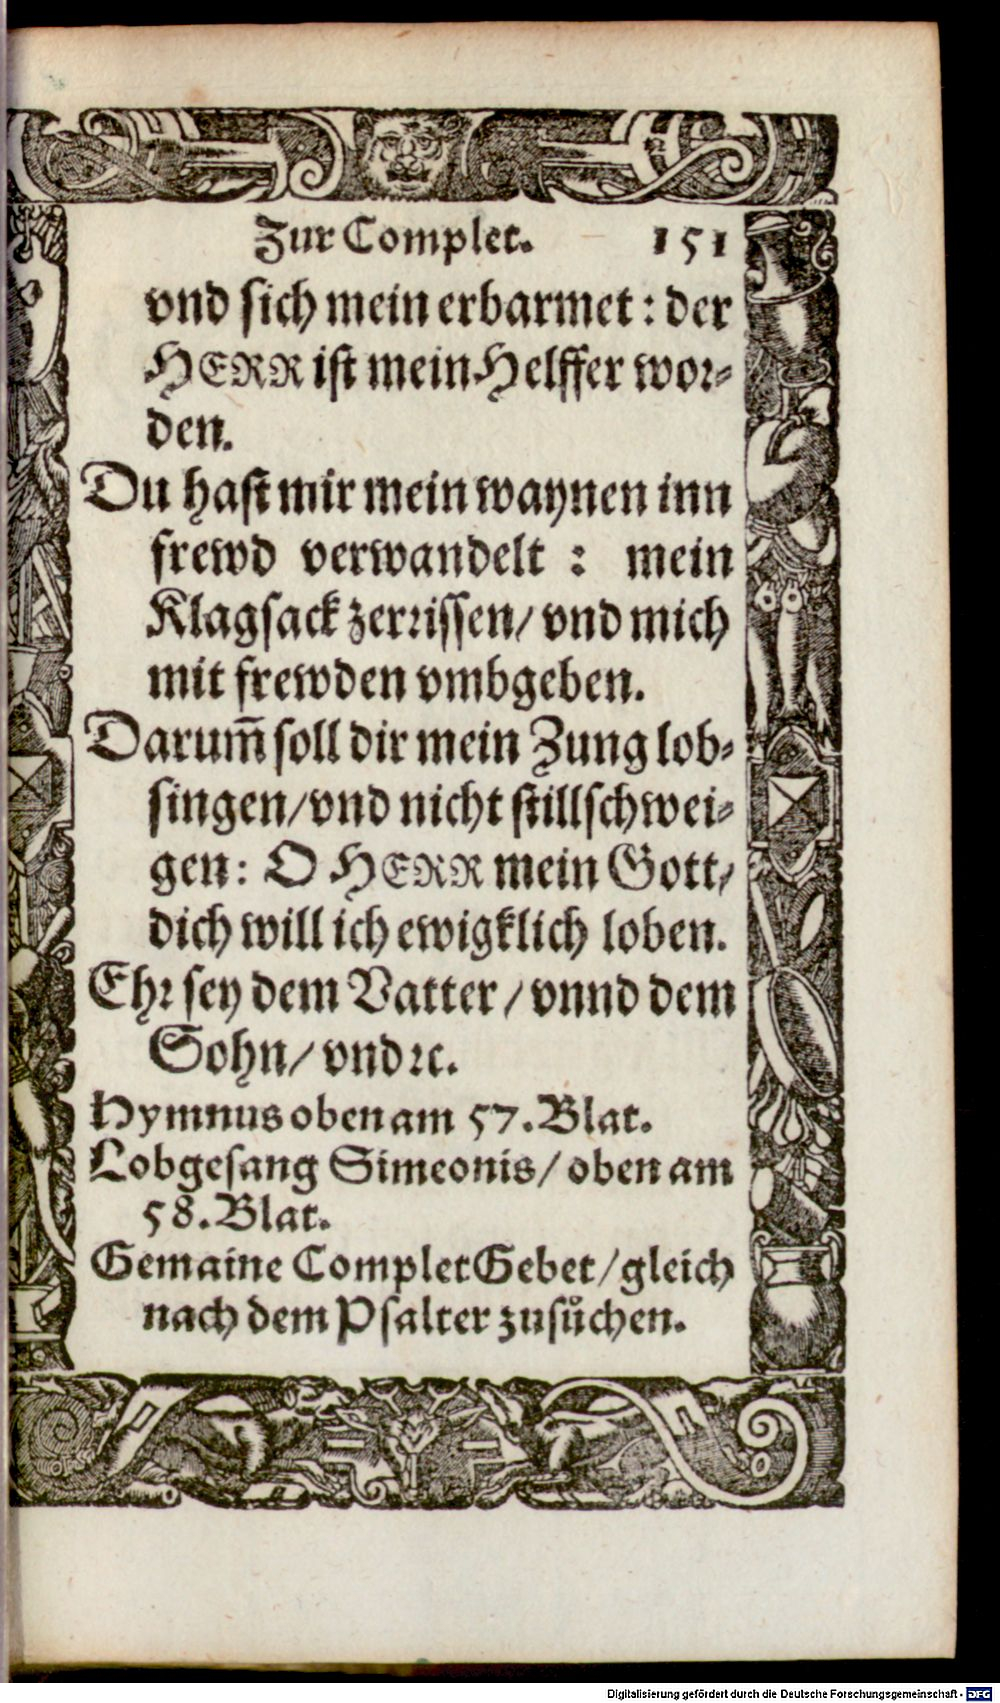 Zur Complet. 151
vnd sich mein erbarmet: der
HERR ist mein Helffer wor-
den.
Du hast mir mein waynen inn
frewd verwandelt : mein
Klagsack zerrissen/ vnd mich
mit frewden vmbgeben.
Darum̃ soll dir mein Zung lob-
singen/vnd nicht stillschwei-
gen: O HERR mein Gott/
dich will ich ewigklich loben.
Ehr sey dem Vatter / vnnd dem
Sohn/ vnd ꝛc.
Hymnus oben am 57. Blat.
Lobgesang Simeonis/ oben am
58. Blat.
Gemaine Complet Gebet/gleich
nach dem Psalter zusůchen.
Digitalisierung gefördert durch die Deutsche Forschungsgemeinschaft - DFG